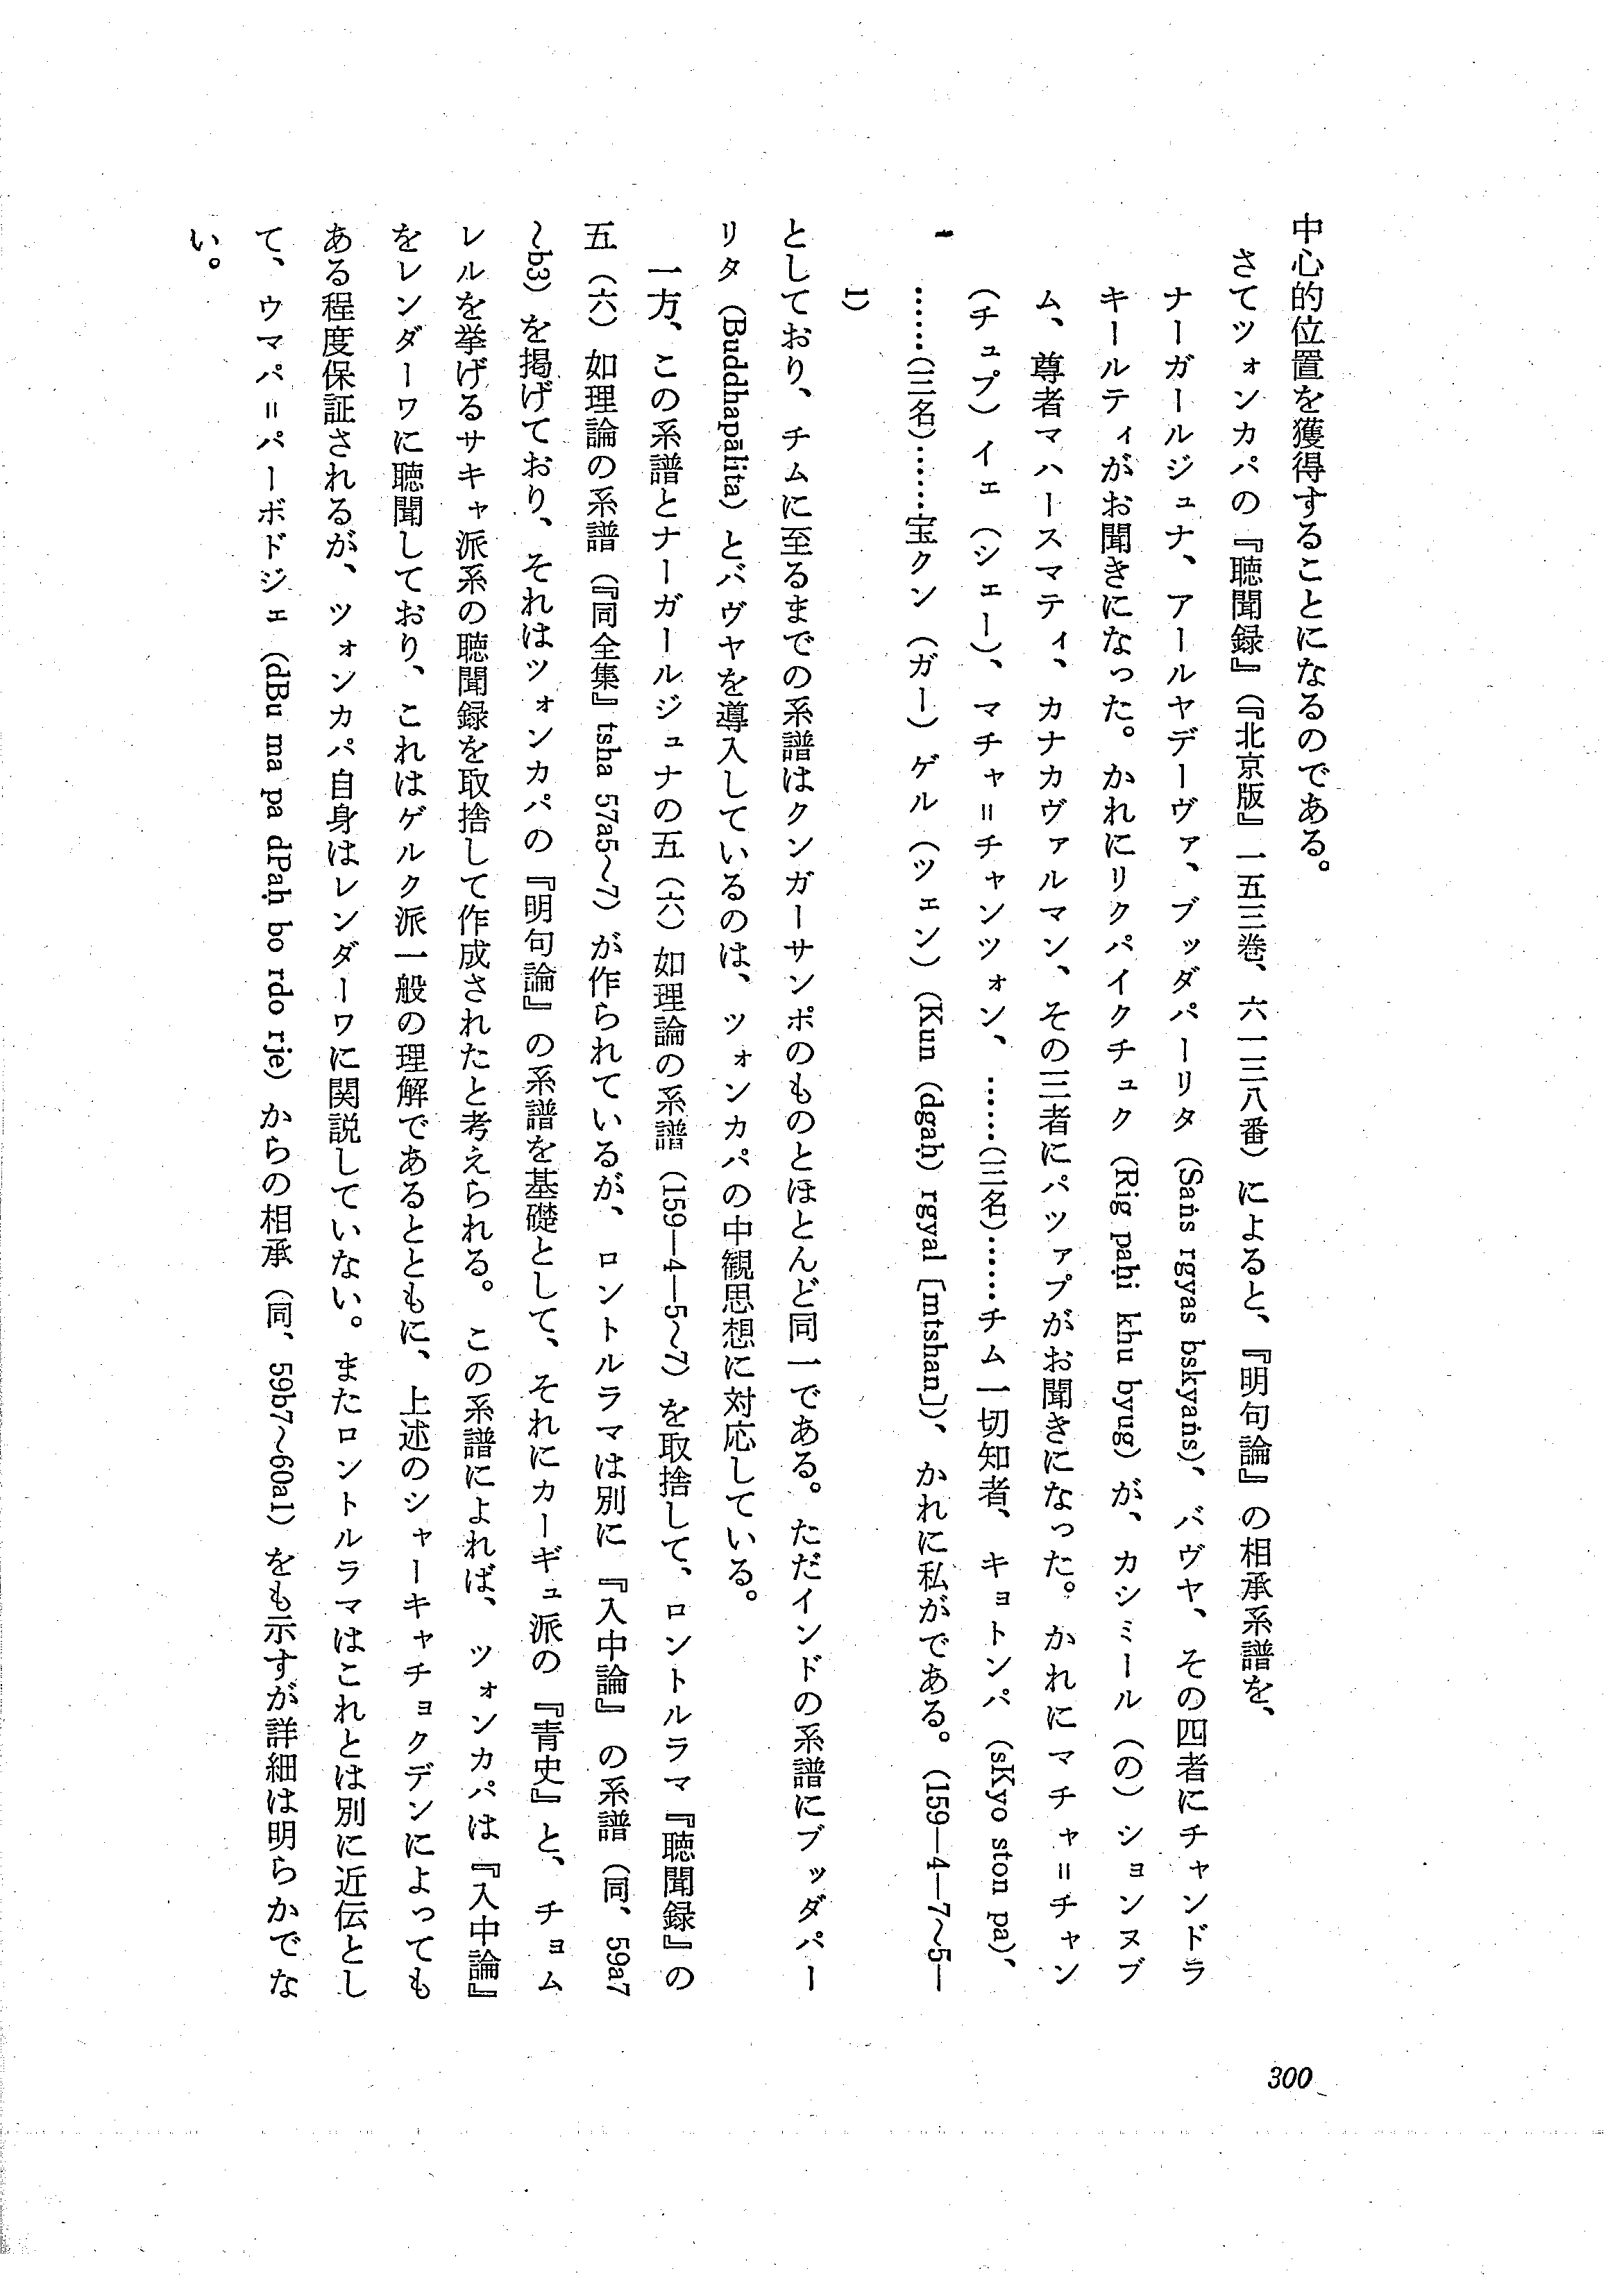 中心的位置を獲得することになるのである。
さてツォンカパの『聴聞録』（『北京版』一五三巻、六一三八番）によると、『明句論』の相承系譜を、
ナーガールジュナ、アールヤデーヴァ、ブッダパーリタ（Saṅs rgyas bskyaṅs）、バヴヤ、その四者にチャンドラ
キールティがお聞きになった。かれにリクパイクチュク（Rig paḥi khu byug）が、カシミール（の）ションヌブ
ム、尊者マハースマティ、カナカヴァルマン、その三者にパツァプがお聞きになった。かれにマチャ＝チャン
（チュプ）イェ（シェー）、マチャ＝チャンツォン、……（三名）……チム一切知者、キョトンパ（sKyo ston pa）、
……（三名）……宝クン（ガー）ゲル（ツェン）（Kun (dgaḥ) rgyal〔mtshan〕）、かれに私がである。（159—4—7〜5—
1）
としており、チムに至るまでの系譜はクンガーサンポのものとほとんど同一である。ただインドの系譜にブッダパー
リタ（Buddhapālita）とバヴヤを導入しているのは、ツォンカパの中観思想に対応している。
一方、この系譜とナーガールジュナの五（六）如理論の系譜（159—4—5〜7）を取捨して、ロントルラマ『聴聞録』の
五（六）如理論の系譜（『同全集』tsha 57a5〜7）が作られているが、ロントルラマは別に『入中論』の系譜（同、59a7
〜b3）を掲げており、それはツォンカパの『明句論』の系譜を基礎として、それにカーギュ派の『青史』と、チョム
レルを挙げるサキャ派系の聴聞録を取捨して作成されたと考えられる。この系譜によれば、ツォンカパは『入中論』
をレンダーワに聴聞しており、これはゲルク派一般の理解であるとともに、上述のシャーキャチョクデンによっても
ある程度保証されるが、ツォンカパ自身はレンダーワに関説していない。またロントルラマはこれとは別に近伝とし
て、ウマパ＝パーボドジェ（dBu ma pa dPaḥ bo rdo rje）からの相承（同、59b7〜60a1）をも示すが詳細は明らかでな
い。
300